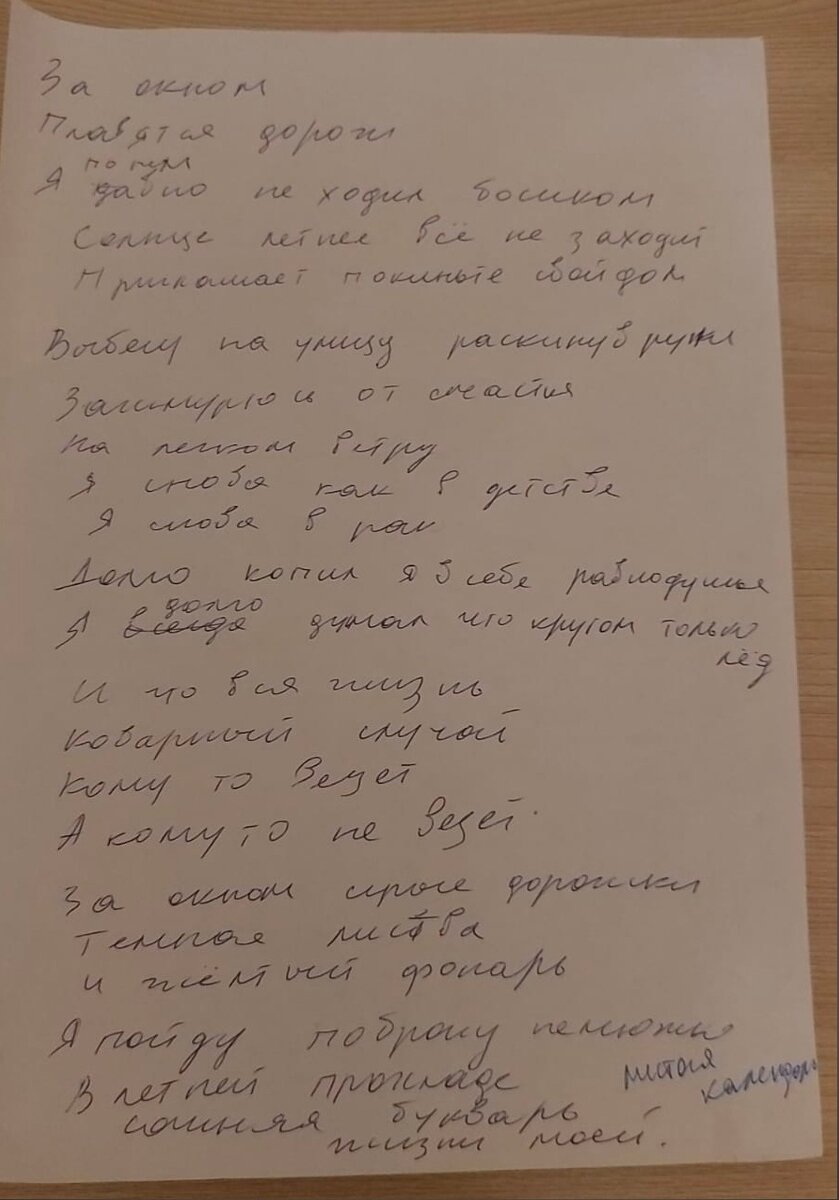 За окном
Плавятся дороги
почти
Я давно не ходил босиком
Солнце летнее всё не заходит
Приглашает покиньте свой дом
Выбегу на улицу раскинув руки
Зажмурюсь от счастья
На легком ветру
Я снова как в детстве
Я снова в раю
Долго копил я в себе равнодушье
долго
Я всегда думал что кругом только
лёд
И что вся жизнь
коварный случай
Кому то везет
А кому то не везет.
За окном серые дорожки
Темная листва
и жёлтый фонарь
Я пойду поброжу немножко
В летней прохладе
листая
календарь
сочиняя букварь
жизни моей.